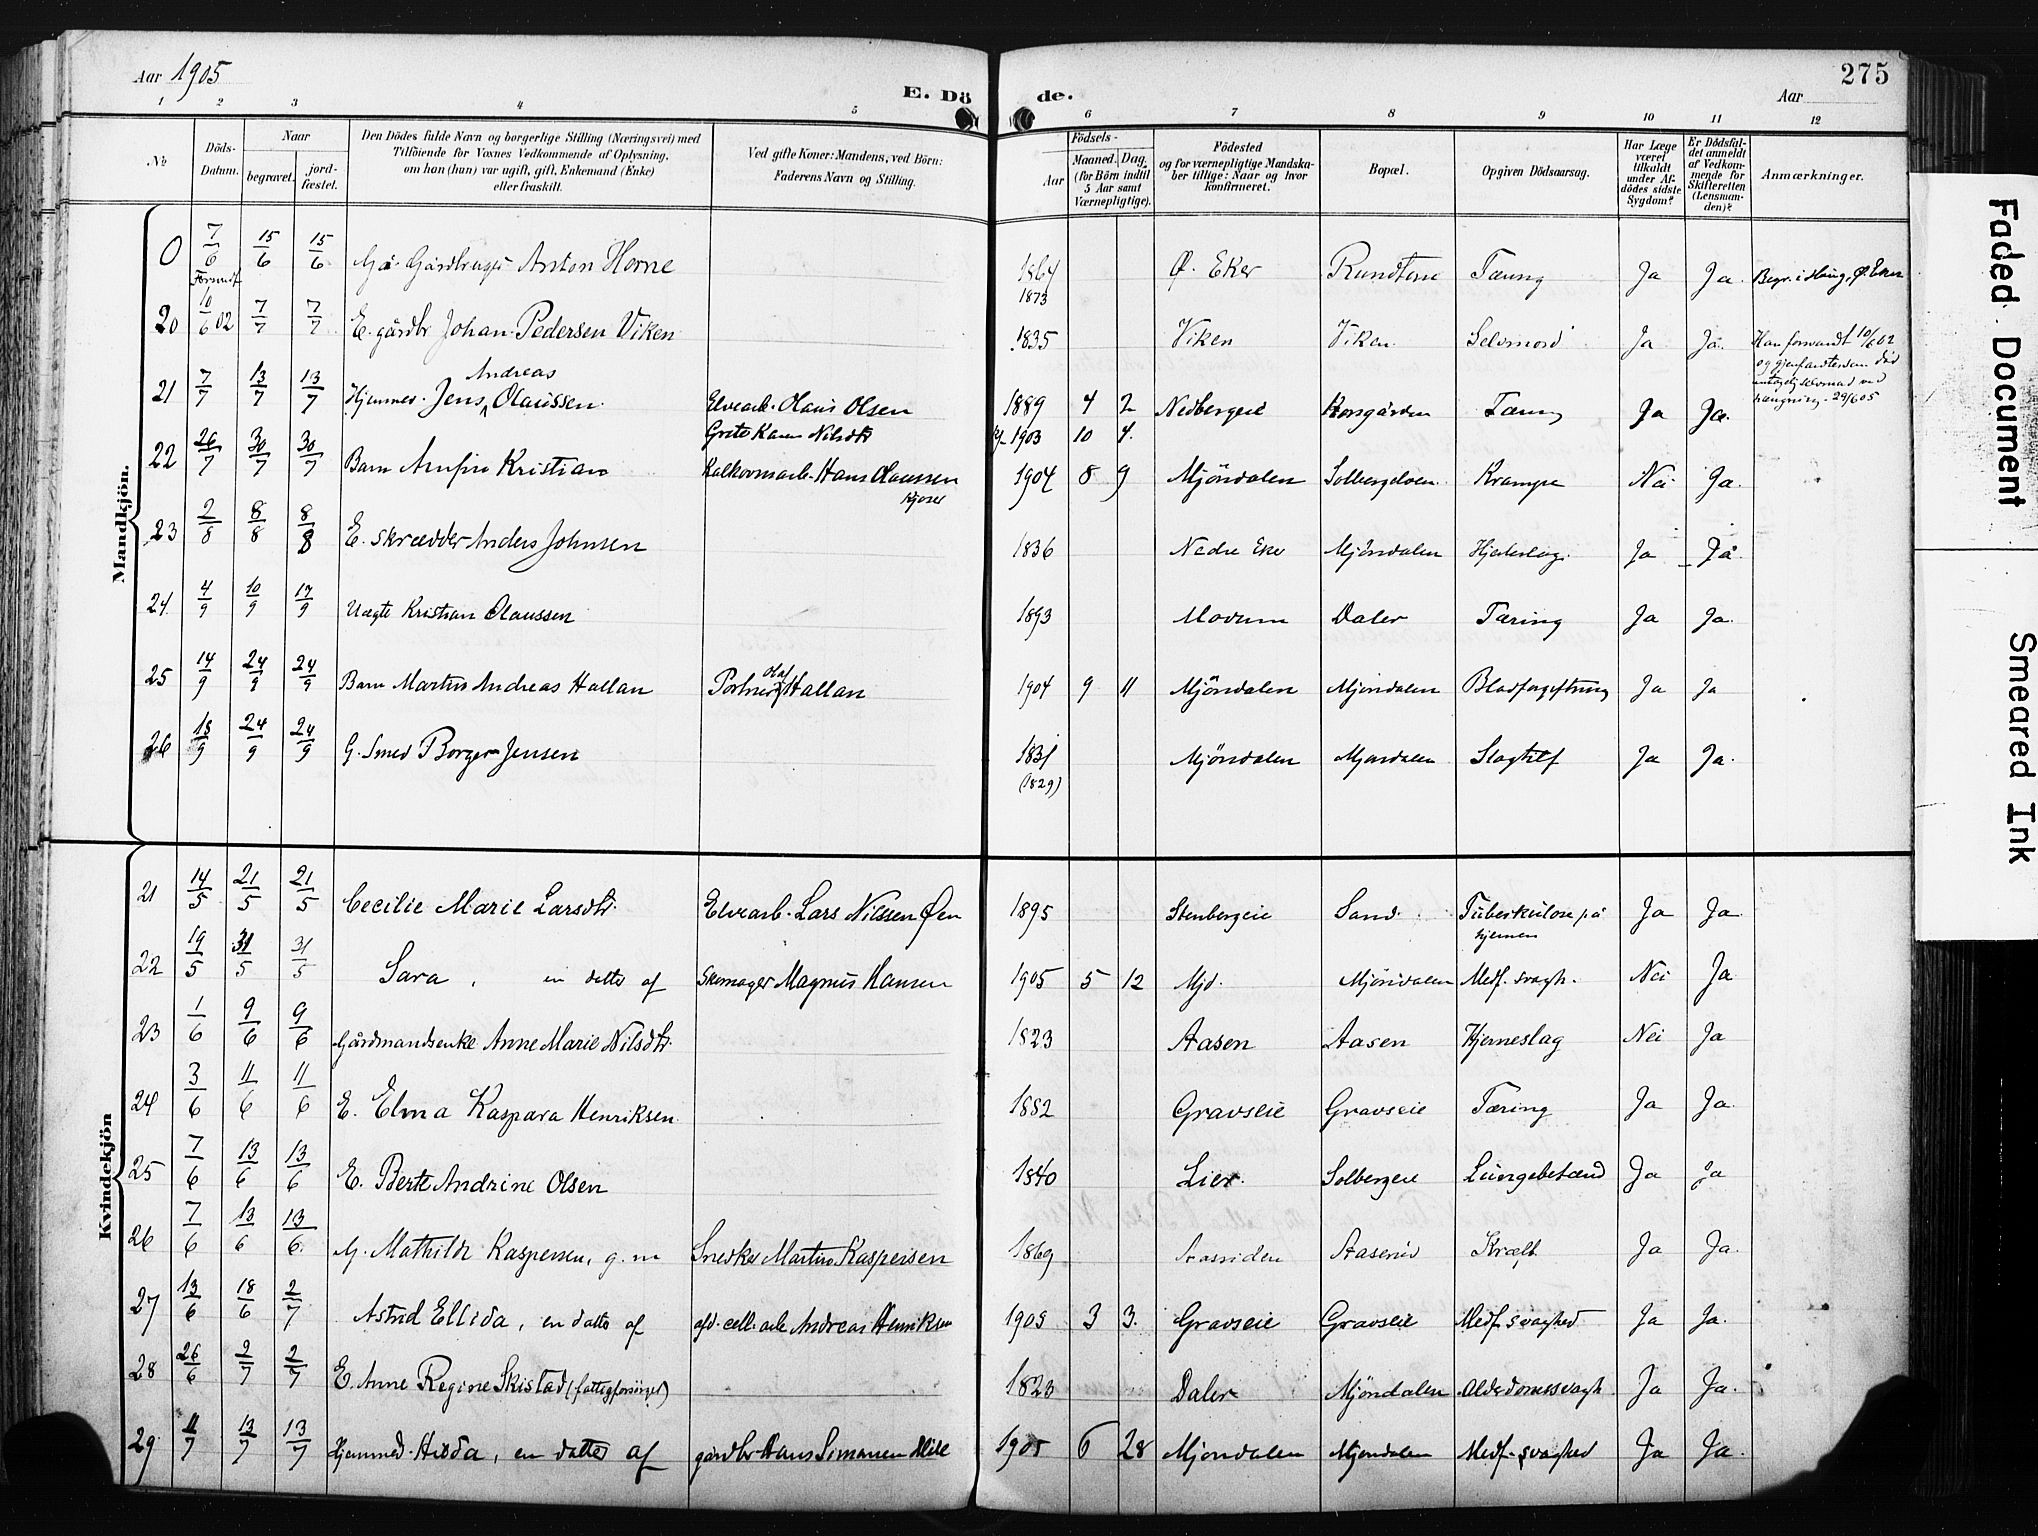 Aar 1905
E. Dö de.
275
Aar
1 2 3 4 5 6 7 8 9 10 11 12
No
Döds-Datum.
Naar
begravet.
jord-fæstet.
Den Dödes fulde Navn og borgerlige Stilling (Næringsvei) med
Tilföiende for Voxnes Vedkommende af Oplysning,
om han (hun) var ugift, gift, Enkemand (Enke)
eller fraskilt.
Ved gifte Koner: Mandens, ved Börn:
Faderens Navn og Stilling.
Födsels-
Aar
Maaned. Dag
(for Börn indtil
5 Aar samt
Værnepligtige).
Födested
og for værnepligtige Mandska-
ber tillige: Naar og hvor
konfirmeret.
Bopæl.
Opgiven Dödsaarsag.
Har Læge
været
tilkaldt
under Af-
dödes sidste
Sygdom?
Er Dödsfal-
det anmeldt
af Vedkom-
mende for
Skifteretten
(Lensman-
den)?
Anmærkninger.
Mandkjön.
0 7/6 15/6 15/6 Anton Horne 1864 Ø. Eker Tæring Ja Ja. Begr. i Haug, Ø. Eker
1873
20 10/6 02 7/7 7/7 E. gårdbr Johan Pedersen Viken 1835 Viken Viken Selvmord Ja Ja. Han forsvandt 10/6 02
Andreas
21 7/7 13/7 13/7 Hjemmed. Jens Olaussen. Elvearb. Olaus Olsen 1889 4 2 Nedbergeie Korsgården Tæring Ja Ja.
Grete Karen Nilsdtr 1903 10 4.
22 26/7 30/7 30/7 Barn Arnfin Kristian Kalkovnsarb. Hans Olaussen 1904 8 9 Mjöndalen Solbergelven Krampe Nei Ja.
23 2/8 8/8 8/8 E. skrædder Anders Johnsen 1836 Nedre Eker Mjöndalen Hjerteslag. Ja Ja.
24 4/9 10/9 17/9 Uægte Kristian Olaussen 1893 Modum Daler Tæring Ja Ja.
Olaf
25 14/9 24/9 24/9 Barn Martin Andreas Hallan Portner Hallan 1904 9 11 Mjöndalen Mjöndalen Blodforgiftning Ja Ja
26 18/9 24/9 24/9 G. Smed Borger Jensen 1831 Mjöndalen Mjöndalen Slagtilf Ja Ja.
(1829)
Kvindekjön
21 14/5 21/5 21/5 Cecilie Marie Larsdtr. Elvearb. Lars Nilssen Øen 1895 Stenbergeie Sand. Tuberkulose på Ja Ja.
hjernen
22 19/5 31/5 31/5 Sara, en datter af Skomager Magnus Hansen 1905 5 12 Mjd. Mjöndalen Medf. svagh. Nei Ja
23 1/6 9/6 9/6 Gårdmandsenke Anne Marie Nilsdtr. 1823 Aasen Aasen Hjerneslag Nei Ja
24 3/6 11/6 11/6 E. Elma Kaspara Henriksen. 1882 Gravseie Gravseie Tæring Ja Ja.
25 7/6 13/6 13/6 E. Berte Andrine Olsen 1840 Lier. Solbergeie Lungebetænd Ja Ja
26 7/6 13/6 13/6. G. Mathilde Kaspersen, g. m Snedker Martin Kaspersen 1869 Aaserud Kræft Ja Ja.
27 13/6 18/6 2/7 Astrid Ellida, en datter af afd. cell. arb Andreas Henriksen 1905 3 3. Gravseie Gravseie Medf. svaghed Ja Ja.
28 26/6 2/7 2/7 E. Anne Regine Skistad (fattigforsörget) 1823 Daler Mjöndalen Alderdomssvagh. Ja Ja.
29 11/7 13/7 13/7 Hjemmed. Hedda, en datter af gårdbr Hans Simonsen Mile 1905 6 28 Mjöndalen Mjöndalen Medf. svaghed Ja Ja.
Faded Document
Smeared Ink